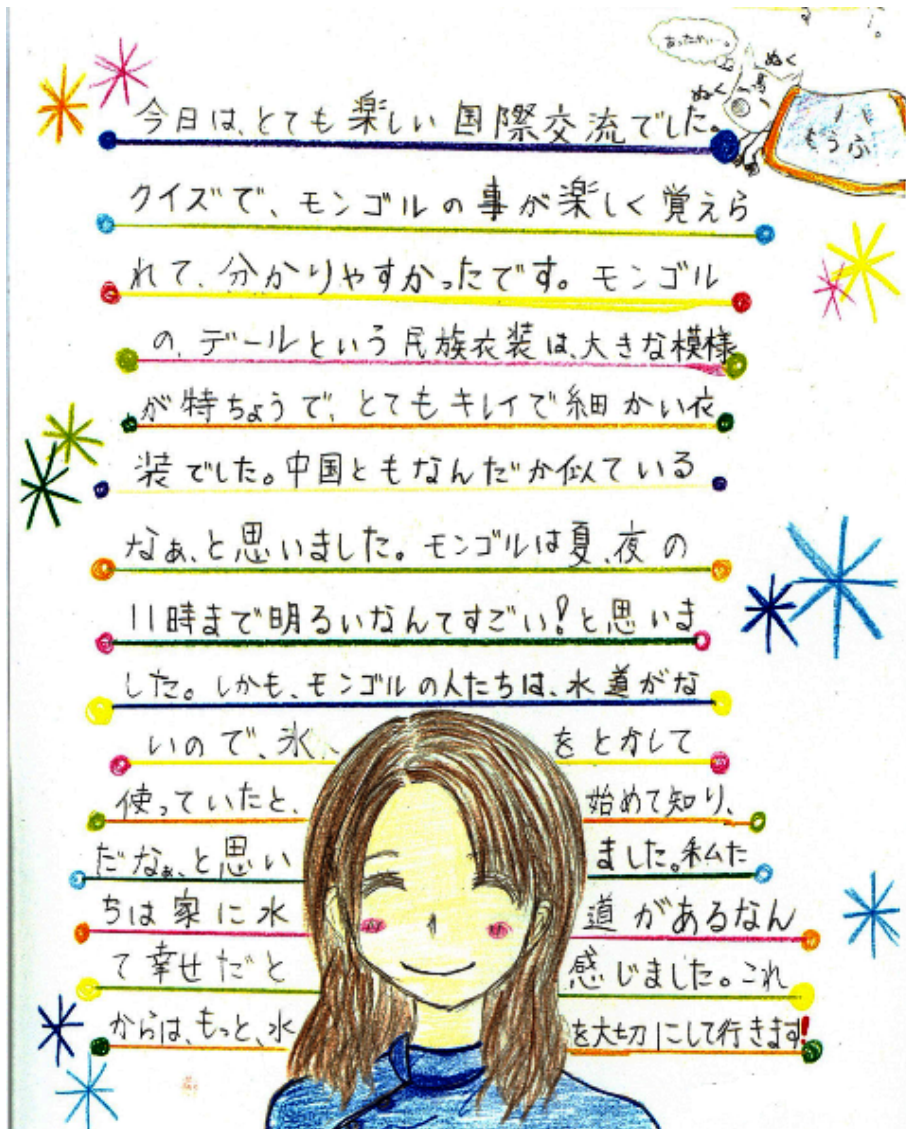 あったかいー。
ぬく
ぬく
もうふ
今日は、とても楽しい国際交流でした。
クイズで、モンゴルの事が楽しく覚えら
れて、分かりやすかったです。モンゴル
の、デールという民族衣装は、大きな模様
が特ちょうで、とてもキレイで細かい衣
装でした。中国ともなんだか似ている
なぁ、と思いました。モンゴルは夏、夜の
11時まで明るいなんてすごい!と思いま
した。しかも、モンゴルの人たちは、水道がな
いので、氷、をとかして
使っていたと、始めて知り、
だなぁ、と思いました。私た
ちは家に水道があるなん
て幸せだと感じました。これ
からは、もっと、水を大切にして行きます!